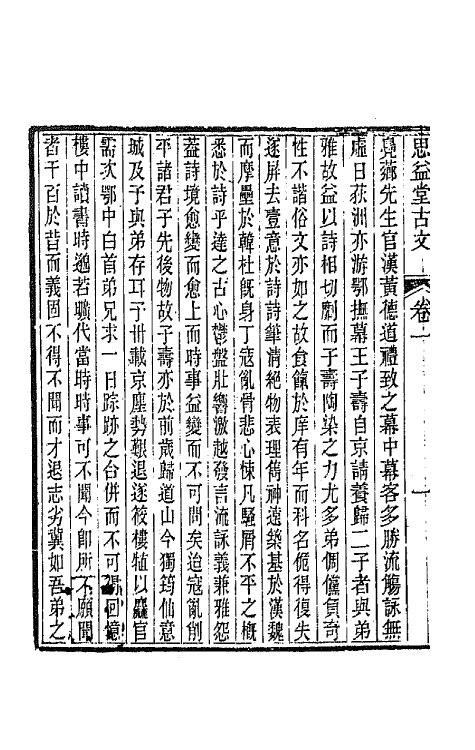 思益堂古文　卷一　一
覺薌先生官漢黃德道禮致之幕中幕客多勝流觴詠無
虛日荻洲亦游鄂撫幕王子壽自京請養歸二子者與弟
雅故益以詩相切劘而子壽陶染之力尤多弟倜儻負奇
性不諧俗文亦如之故食餼於庠有年而科名倔得復失
遂屏去壹意於詩詩筆清絕物表理儁神遠築基於漢魏
而摩壘於韓杜旣身丁寇亂骨悲心悚凡騷屑不平之槪
悉於詩乎達之古心鬱盤壯響激越發言流詠義兼雅怨
蓋詩境愈變而愈上而時事益變而不可問矣迨寇亂削
平諸君子先後物故子壽亦於前歲歸道山今獨筠仙意
城及予與弟存耳予卅載京塵勢艱退遂筱樓犆以廳官
需次鄂中白首弟兄求一日踪跡之台併而不可得回憶
樓中讀書時邈若曠代當時時事可不聞今卽所不願聞
者千百於昔而義固不得不聞而才退志劣冀如吾弟之